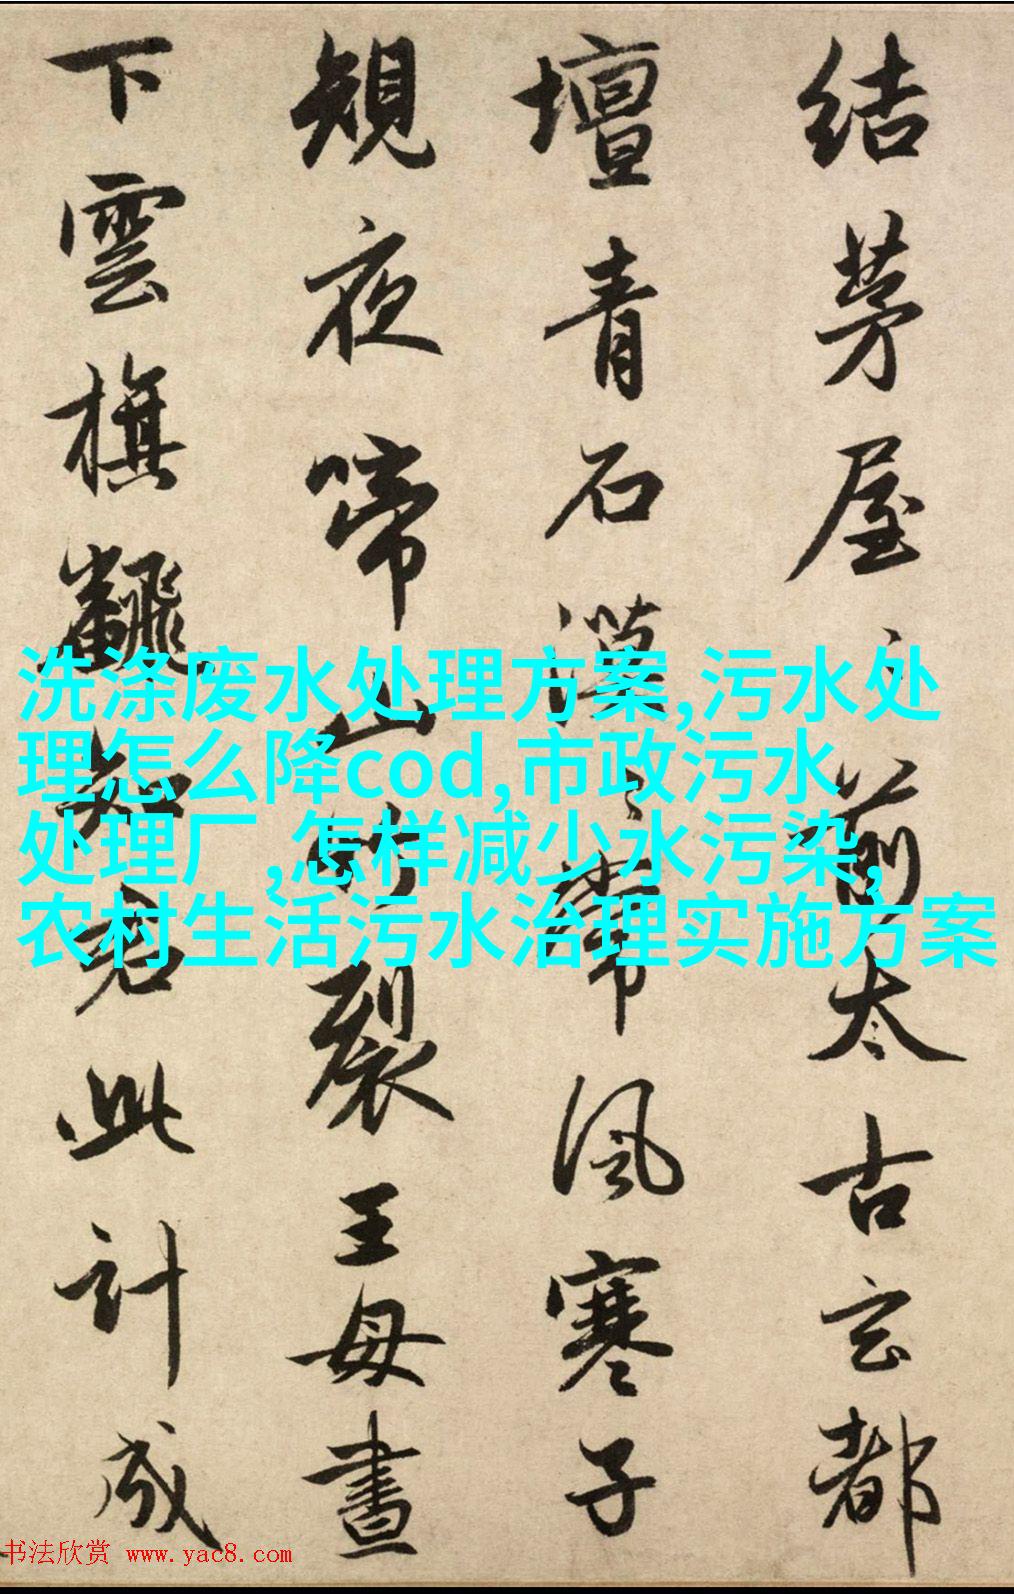 结茅屋〻前太古玄都
壇青石漠〻常風寒子
規夜啼山竹裂王母晝
下雲旗飜知君此計成
洗涤废水处理方案,污水处
理怎么降cod,市政污水
处理厂,怎样减少水污染,
农村生活污水治理实施方案
书法欣赏 www.yac8.com